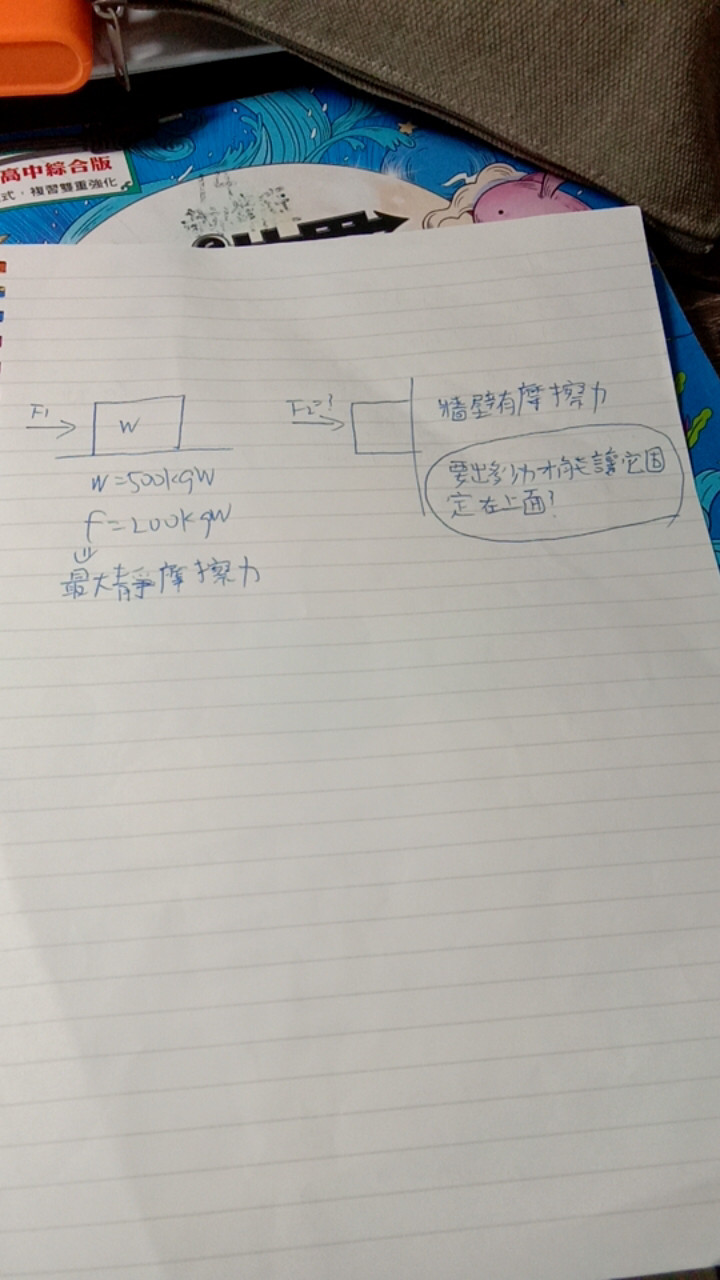 高中綜合版
式，複習雙重強化
F1
W
W=500kgW
f=200kgW
最大靜摩擦力
F2=?
牆壁有摩擦力
要出多少力才能讓它固
定在上面?